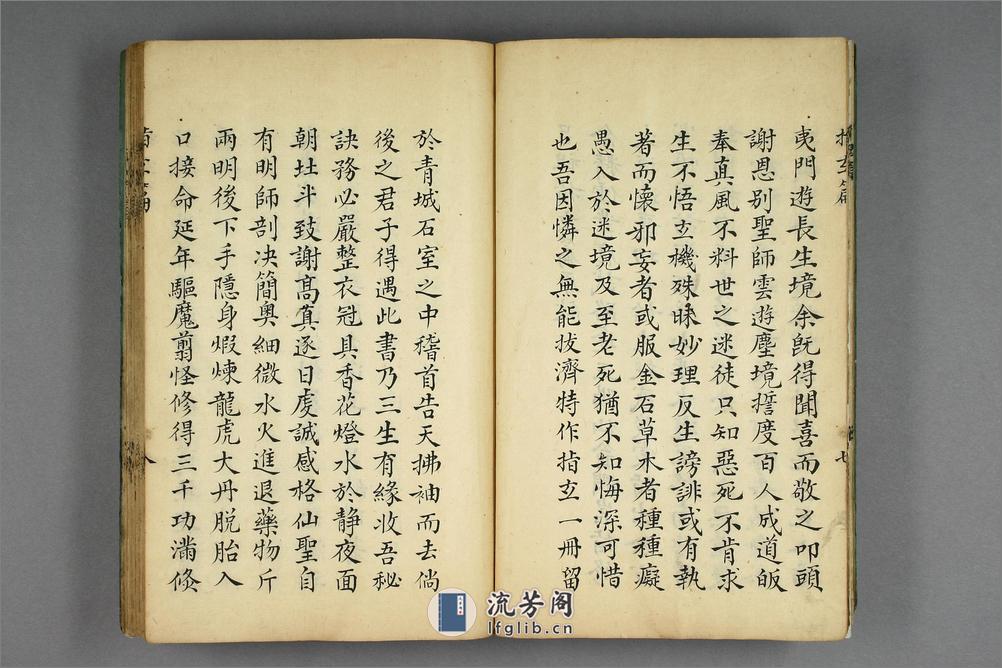 夷門遊長生境余旣得聞喜而敬之叩頭
謝恩别聖師雲遊塵境誓度百人成道皈
奉真風不料世之迷徒只知惡死不肯求
生不悟玄機殊昧妙理反生謗誹或有執
著而懷邪妄者或服金石草木者種種癡
愚入於迷境及至老死猶不知悔深可惜
也吾因憐之無能拔濟特作指玄一冊留
七
於青城石室之中稽首告天拂袖而去倘
後之君子得遇此書乃三生有緣收吾秘
訣務必嚴整衣冠具香花燈水於静夜面
朝北斗致謝高真逐日虔誠感格仙聖自
有明師剖决簡奥細微水火進退藥物斤
兩明後下手隱身煆煉龍虎大丹脱胎入
口接命延年驅魔剪怪修得三千功滿倐
八
流芳阁
lfglib.cn